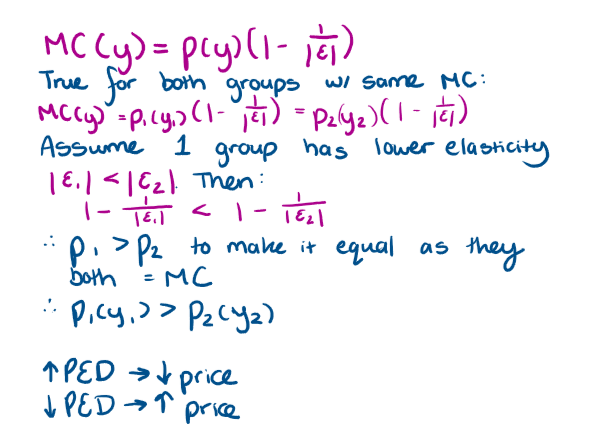 MC(y) = p(y)(1 - 1/|ε|)
True for both groups w/ same MC:
MC(y) = p₁(y₁)(1 - 1/|ε|) = p₂(y₂)(1 - 1/|ε|)
Assume 1 group has lower elasticity
|ε₁| < |ε₂|. Then:
1 - 1/|ε₁| < 1 - 1/|ε₂|
∴ p₁ > p₂ to make it equal as they
both = MC
∴ p₁(y₁) > p₂(y₂)
↑ PED → ↓ price
↓ PED → ↑ price